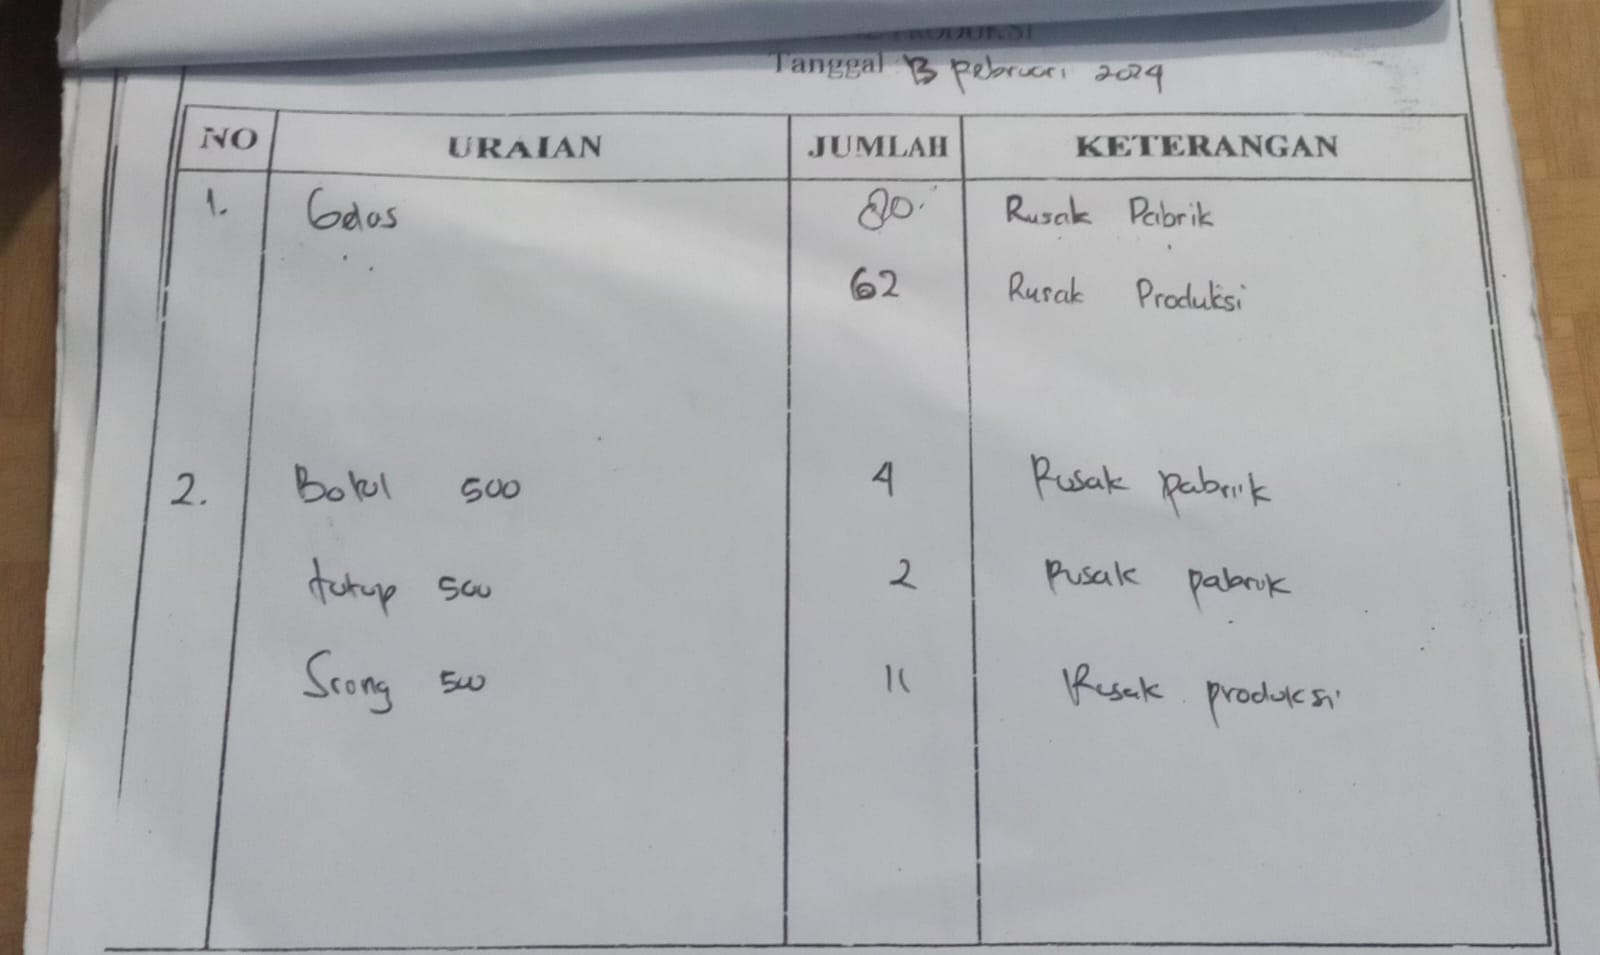 PRODUKSI
Tanggal 13 pebruari 2024
NO URAIAN JUMLAH KETERANGAN
1. Gelas 80 Rusak Pabrik
62 Rusak Produksi
2. Botol 500 4 Rusak pabrik
tutup 500 2 Rusak pabrik
Srong 500 11 Rusak produksi